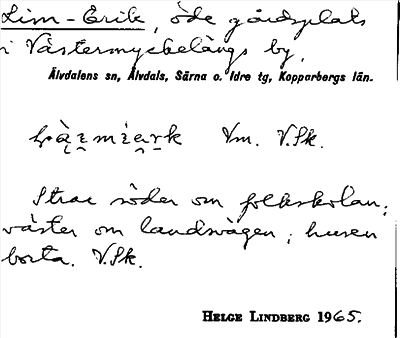 Lim-Erik, öde gårdsplats
i Västermyckelängs by,
Älvdalens sn, Älvdals, Särna o. Idre tg, Kopparbergs län.
Vm. V.Sk.
Strax söder om folkskolan;
väster om landsvägen; husen
borta. V.Sk.
HELGE LINDBERG 1965.